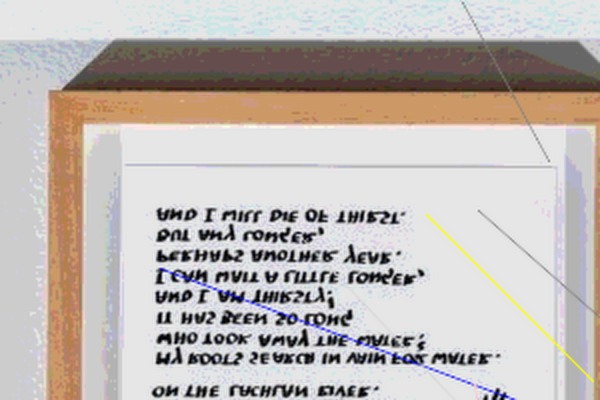 ON THE LACHLAN RIVER.
MY ROOTS SEARCH IN VAIN FOR WATER.
WHO TOOK AWAY THE WATER;
IT HAS BEEN SO LONG
AND I AM THIRSTY;
I CAN WAIT A LITTLE LONGER,
PERHAPS ANOTHER YEAR.
BUT ANY LONGER,
AND I WILL DIE OF THIRST.